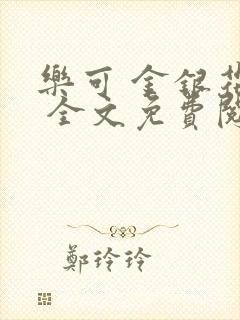 樂可 金銀花
全文免費閱
鄭玲玲